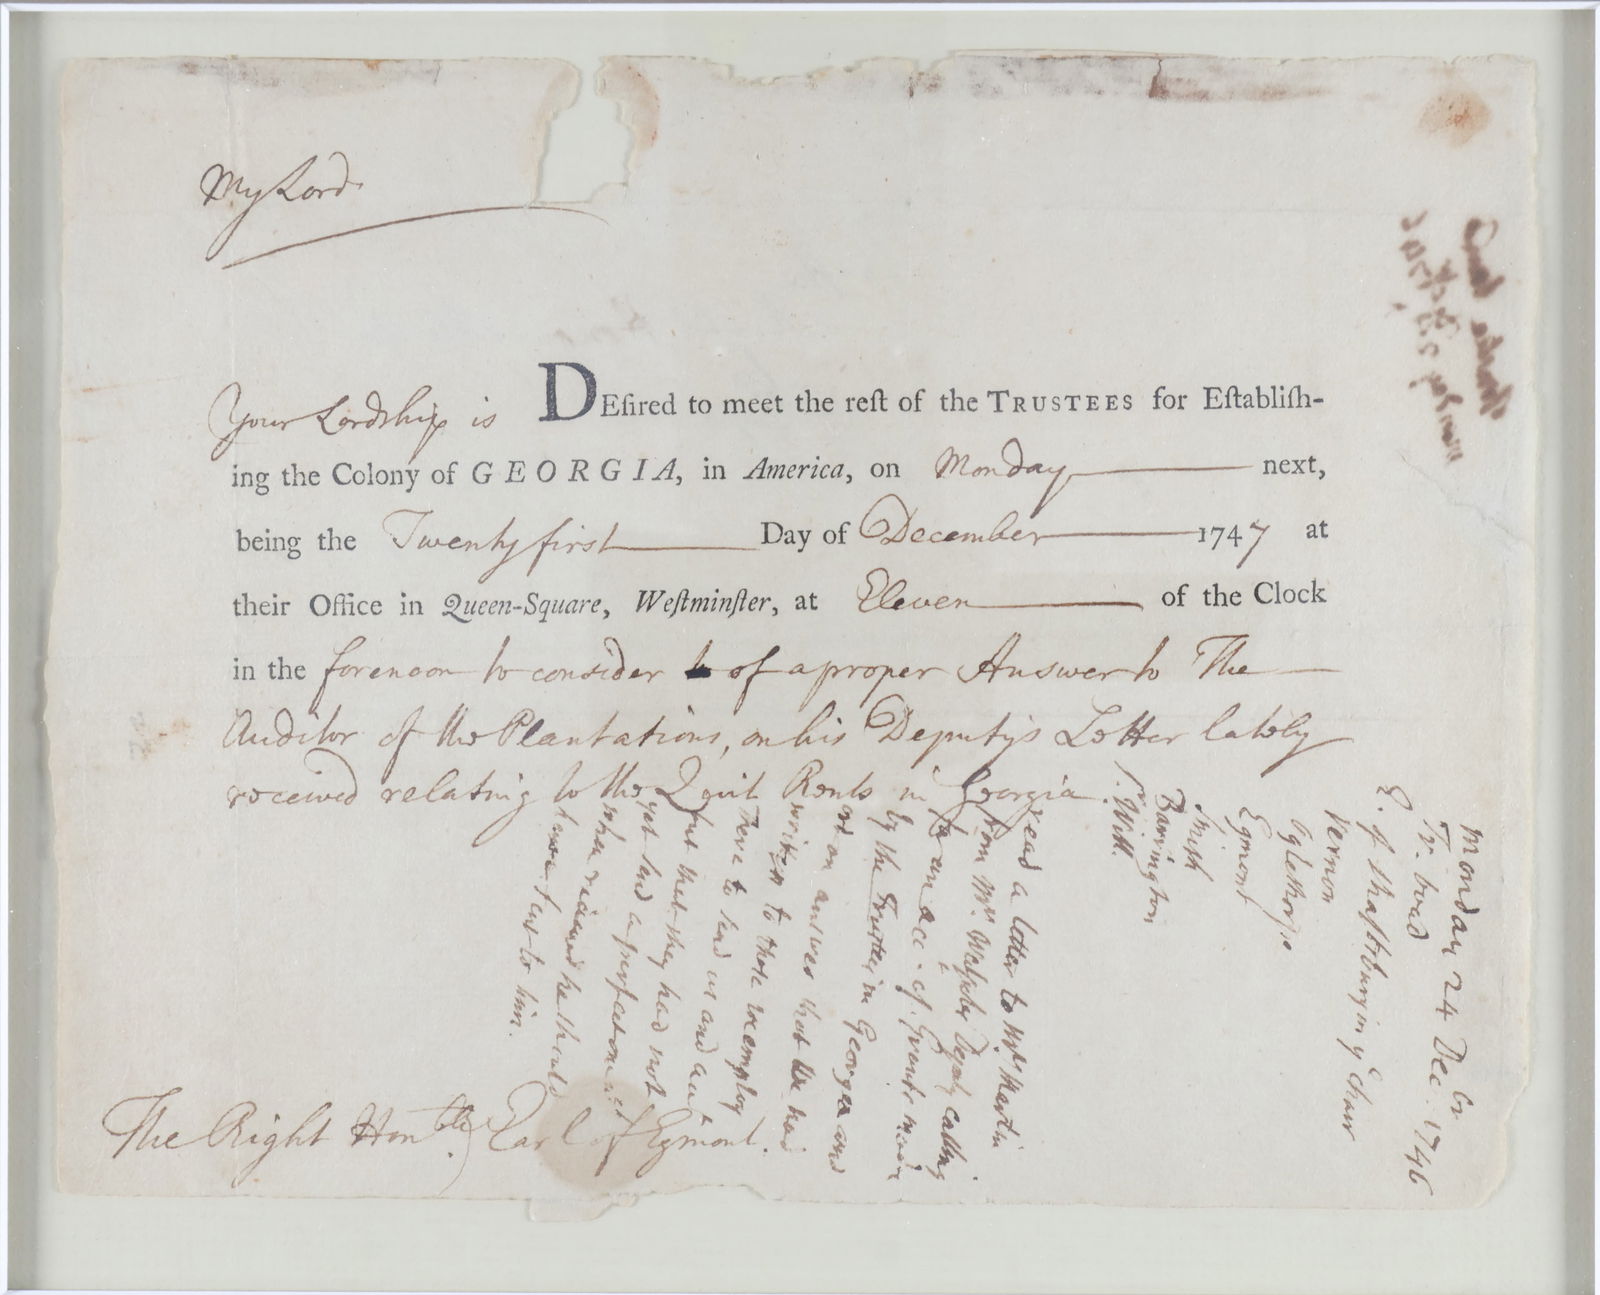 My Lord
Your Lordship is DEſired to meet the reſt of the TRUSTEES for Eſtabliſh-
ing the Colony of GEORGIA, in America, on Monday next,
being the Twenty first Day of December 1747 at
their Office in Queen-Square, Weſtminſter, at Eleven of the Clock
in the forenoon to consider of a proper Answer to The
Auditor of the Plantations, on his Deputy's Letter lately
received relating to the Quit Rents in Georgia.
The Right Honble. Earl of Egmont.
Monday 24 Dec. 1746
Tr. board
E. of Shaftsbury in ye Chair
Vernon
Oglethorpe
Egmont
Smith
Barrington
read a letter to Mr. Martin
from Mr. Walpoles Deputy calling
for an acc. of Grants made
by the Trustees in Georgia and
an answer that we had
written to those we employ
there to send us and acct
but that they had not
yet send a perfect one
when received he should
have it sent to him.